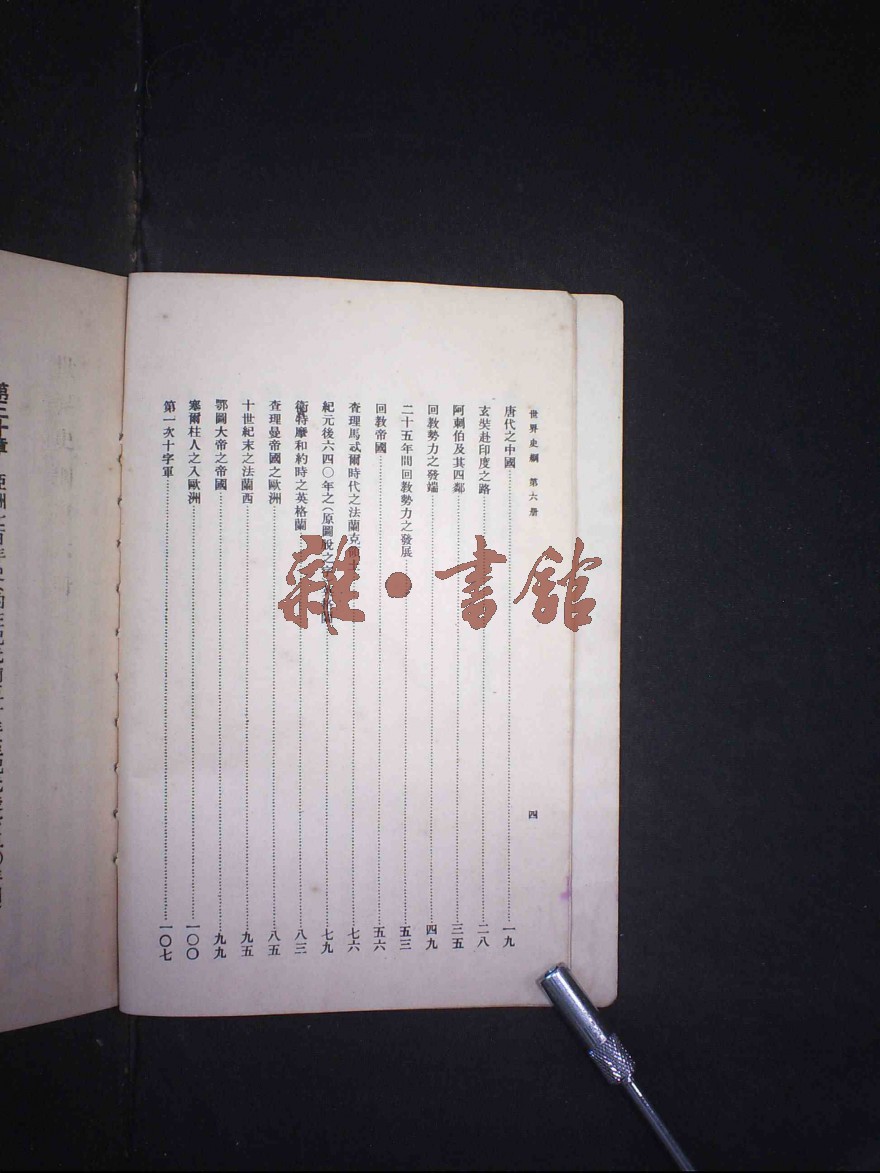 世界史綱 第六册
四
唐代之中國 一九
玄奘赴印度之路 二八
阿剌伯及其四鄰 三五
回教勢力之發端 四九
二十五年間回教勢力之發展 五三
回教帝國 五六
查理馬忒爾時代之法蘭克 七六
紀元後六四〇年之(原圖說之 七九
衛特摩和約時之英格蘭 八三
查理曼帝國之歐洲 八五
十世紀末之法蘭西 九五
鄂圖大帝之帝國 九九
塞爾柱人之入歐洲 一〇〇
第一次十字軍 一〇七
雜·書館